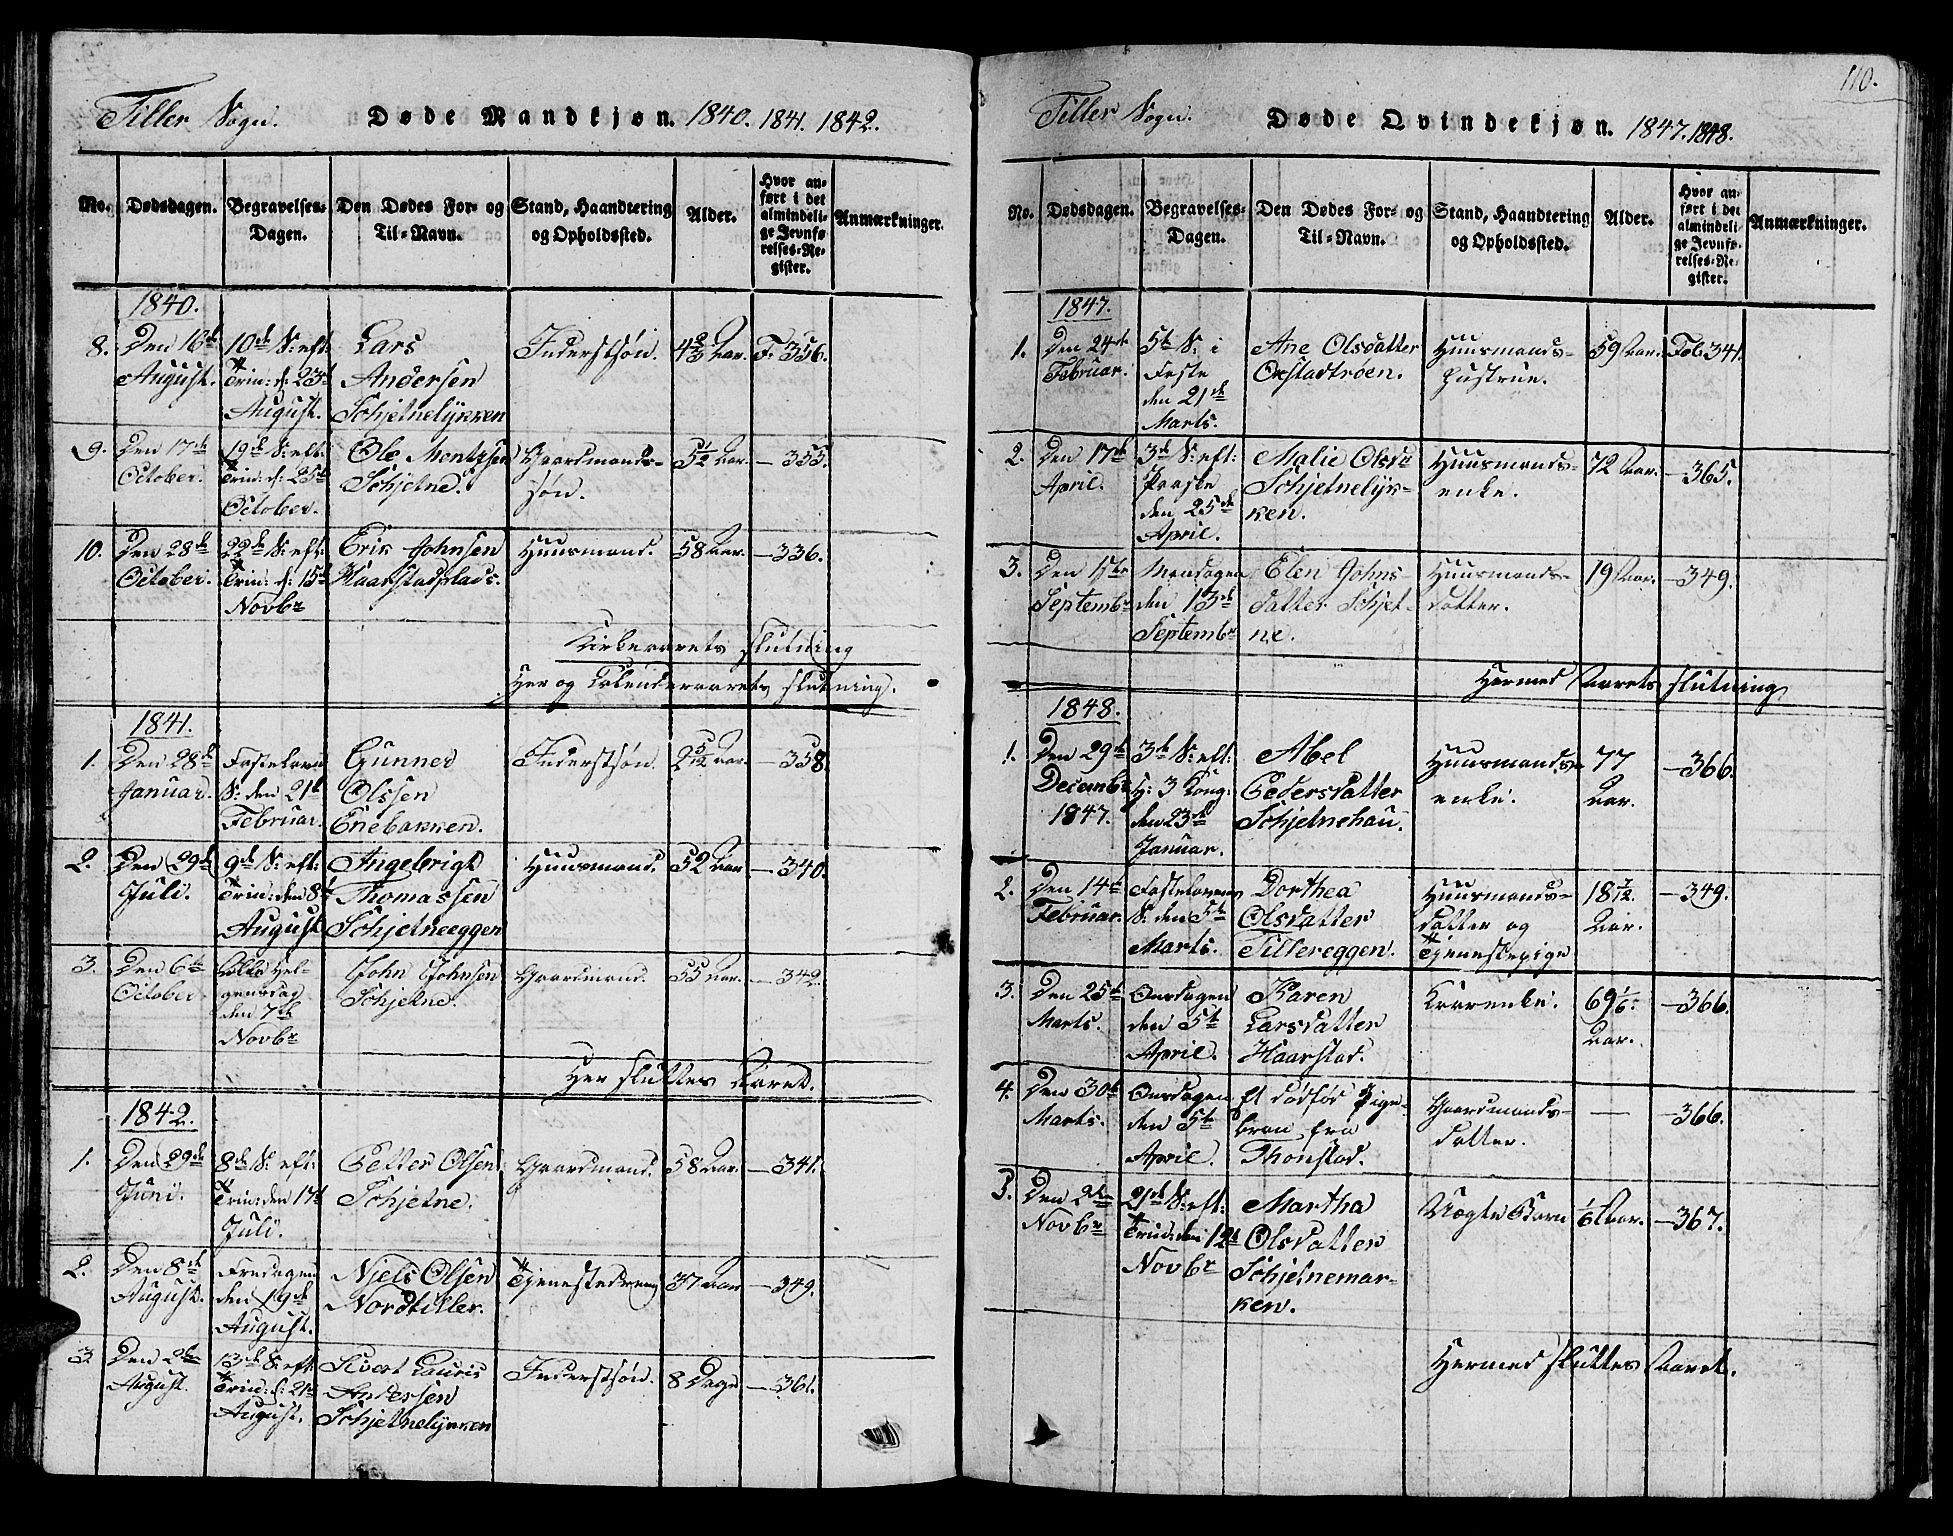 Tiller Sogn. Døde Mandkjøn. 1840. 1841. 1842.
No. Dødsdagen. Begravelses-Dagen. Den Dødes For- og Til-Navn. Stand, Haandtering og Opholdssted. Alder. Hvor anført i det almindelige Jevnførelses-Register. Anmærkninger.
1840.
8. Den 16de 10de S: eft: Lars Inderstsøn. 4 2/3 Aar. F. 356.
August. Trin: d: 23d Andersen
August. Schjetnelÿkken
9. Den 17de 19de S: eft: Ole Mentzsen Gaardmands- 5 1/2 Aar. — 355.
October. Trin: d: 25de Schjetne. søn.
October.
10. Den 28de 22de S: eft: Erik Johnsen Huusmand. 58 Aar. — 336.
October. Trin: d: 15de Haarstadplads.
Novbr
Kirkeaarets slutning
Her og Calenderaarets slutning.
1841.
1. Den 28de Fastelavns Gunner Inderstsøn. 2 5/12 Aar. — 358.
Januar. S: den 21de Olssen
Februar. Enebakken.
2. Den 29de 9de S: eft: Ingebrigt Huusmand. 52 Aar — 340.
Juli. Trin: den 8de Thomassen
August Schjetneeggen
3. Den 6te Alle Hel- John Johnsen Gaardmand. 55 Aar. — 342.
October. gensdag Schjetne.
den 7de
Novbr
Her sluttes Aaret.
1842.
1. Den 29de 8de S: eft: Petter Olsen Gaardmand. 58 Aar. — 341.
Juni. Trin: den 17de Schjetne.
Juli.
2. Den 8de Fredagen Niels Olsen Tjenestedreng 37 Aar — 349.
August. den 19de Nordtiller.
August.
3. Den 2den 13de S: eft: Sivert Lauris Inderstsøn. 8 Dage — 361.
August. Trin: d: 21de Anderssen
August. Schjetnelÿkken
110.
Tiller Sogn. Døde Qvindekjøn. 1847. 1848.
No. Dødsdagen. Begravelses-Dagen. Den Dødes For- og Til-Navn. Stand, Haandtering og Opholdssted. Alder. Hvor anført i det almindelige Jevnførelses-Register. Anmærkninger.
1847.
1. Den 24de 5te S: i Ane Olsdatter Huusmands- 59 Aar. Fol: 341.
Februar. Faste Oxstadtrøen. hustrue.
den 21de
Marts.
2. Den 17de 3de S: eft: Malie Olsdr Huusmands- 72 Aar. — 365.
April. Paaske Schjetnelÿk- enke.
den 25de ken.
April.
3. Den 5te Mandagen Elen Johns- Huusmands- 19 Aar. — 349.
Septembr den 13de datter Schjet- datter.
Septembr ne.
Hermed Aarets slutning
1848.
1. Den 29de 3de S: eft: Abel Huusmands- 77 — 366.
Decembr H: 3 Kong: Pedersdatter enke. Aar.
1847. den 23de Schjetnehau.
Januar.
2. Den 14de Fastelavns Dorthea Huusmands- 18 7/12 — 349.
Februar. S: den 5te Olsdatter datter og Aar.
Marts. Tillereggen. Tjenestepige
3. Den 25de Onsdagen Karen Kaarenke. 69 1/6 — 366.
Marts. den 5te Larsdatter Aar.
April. Haarstad.
4. Den 30te Onsdagen Et dødfød Pige- Gaardmands- — — 366.
Marts. den 5te barn fra datter.
April. Thonstad.
5. Den 2den 21de S: eft: Martha Uægte Barn 1/6 Aar. — 367.
Novbr Trin: den 12te Olsdatter
Novbr Schjetnemar-
ken.
Hermed sluttes Aaret.